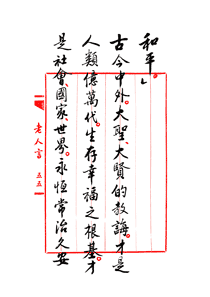 和平。」
古今中外。大聖、大賢的教誨。才是
人類億萬代生存幸福之根基。才
是社會、國家、世界、永恒常治久安
老人言 五五